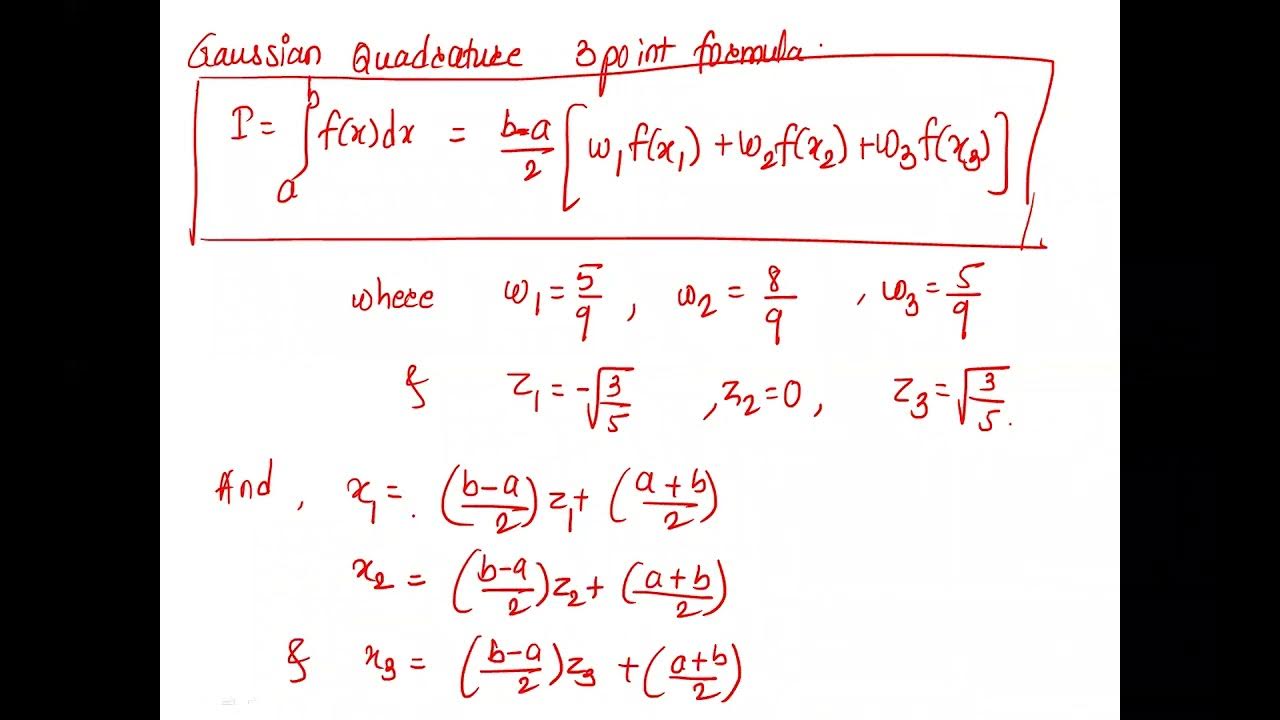 Gaussian Quadrature 3 point formula.
I = ∫_a^b f(x)dx = (b-a)/2 [w₁f(x₁) + w₂f(x₂) + w₃f(x₃)]
where w₁ = 5/9, w₂ = 8/9, w₃ = 5/9
& z₁ = -√(3/5), z₂ = 0, z₃ = √(3/5).
And, x₁ = ((b-a)/2)z₁ + ((a+b)/2)
x₂ = ((b-a)/2)z₂ + ((a+b)/2)
& x₃ = ((b-a)/2)z₃ + ((a+b)/2)